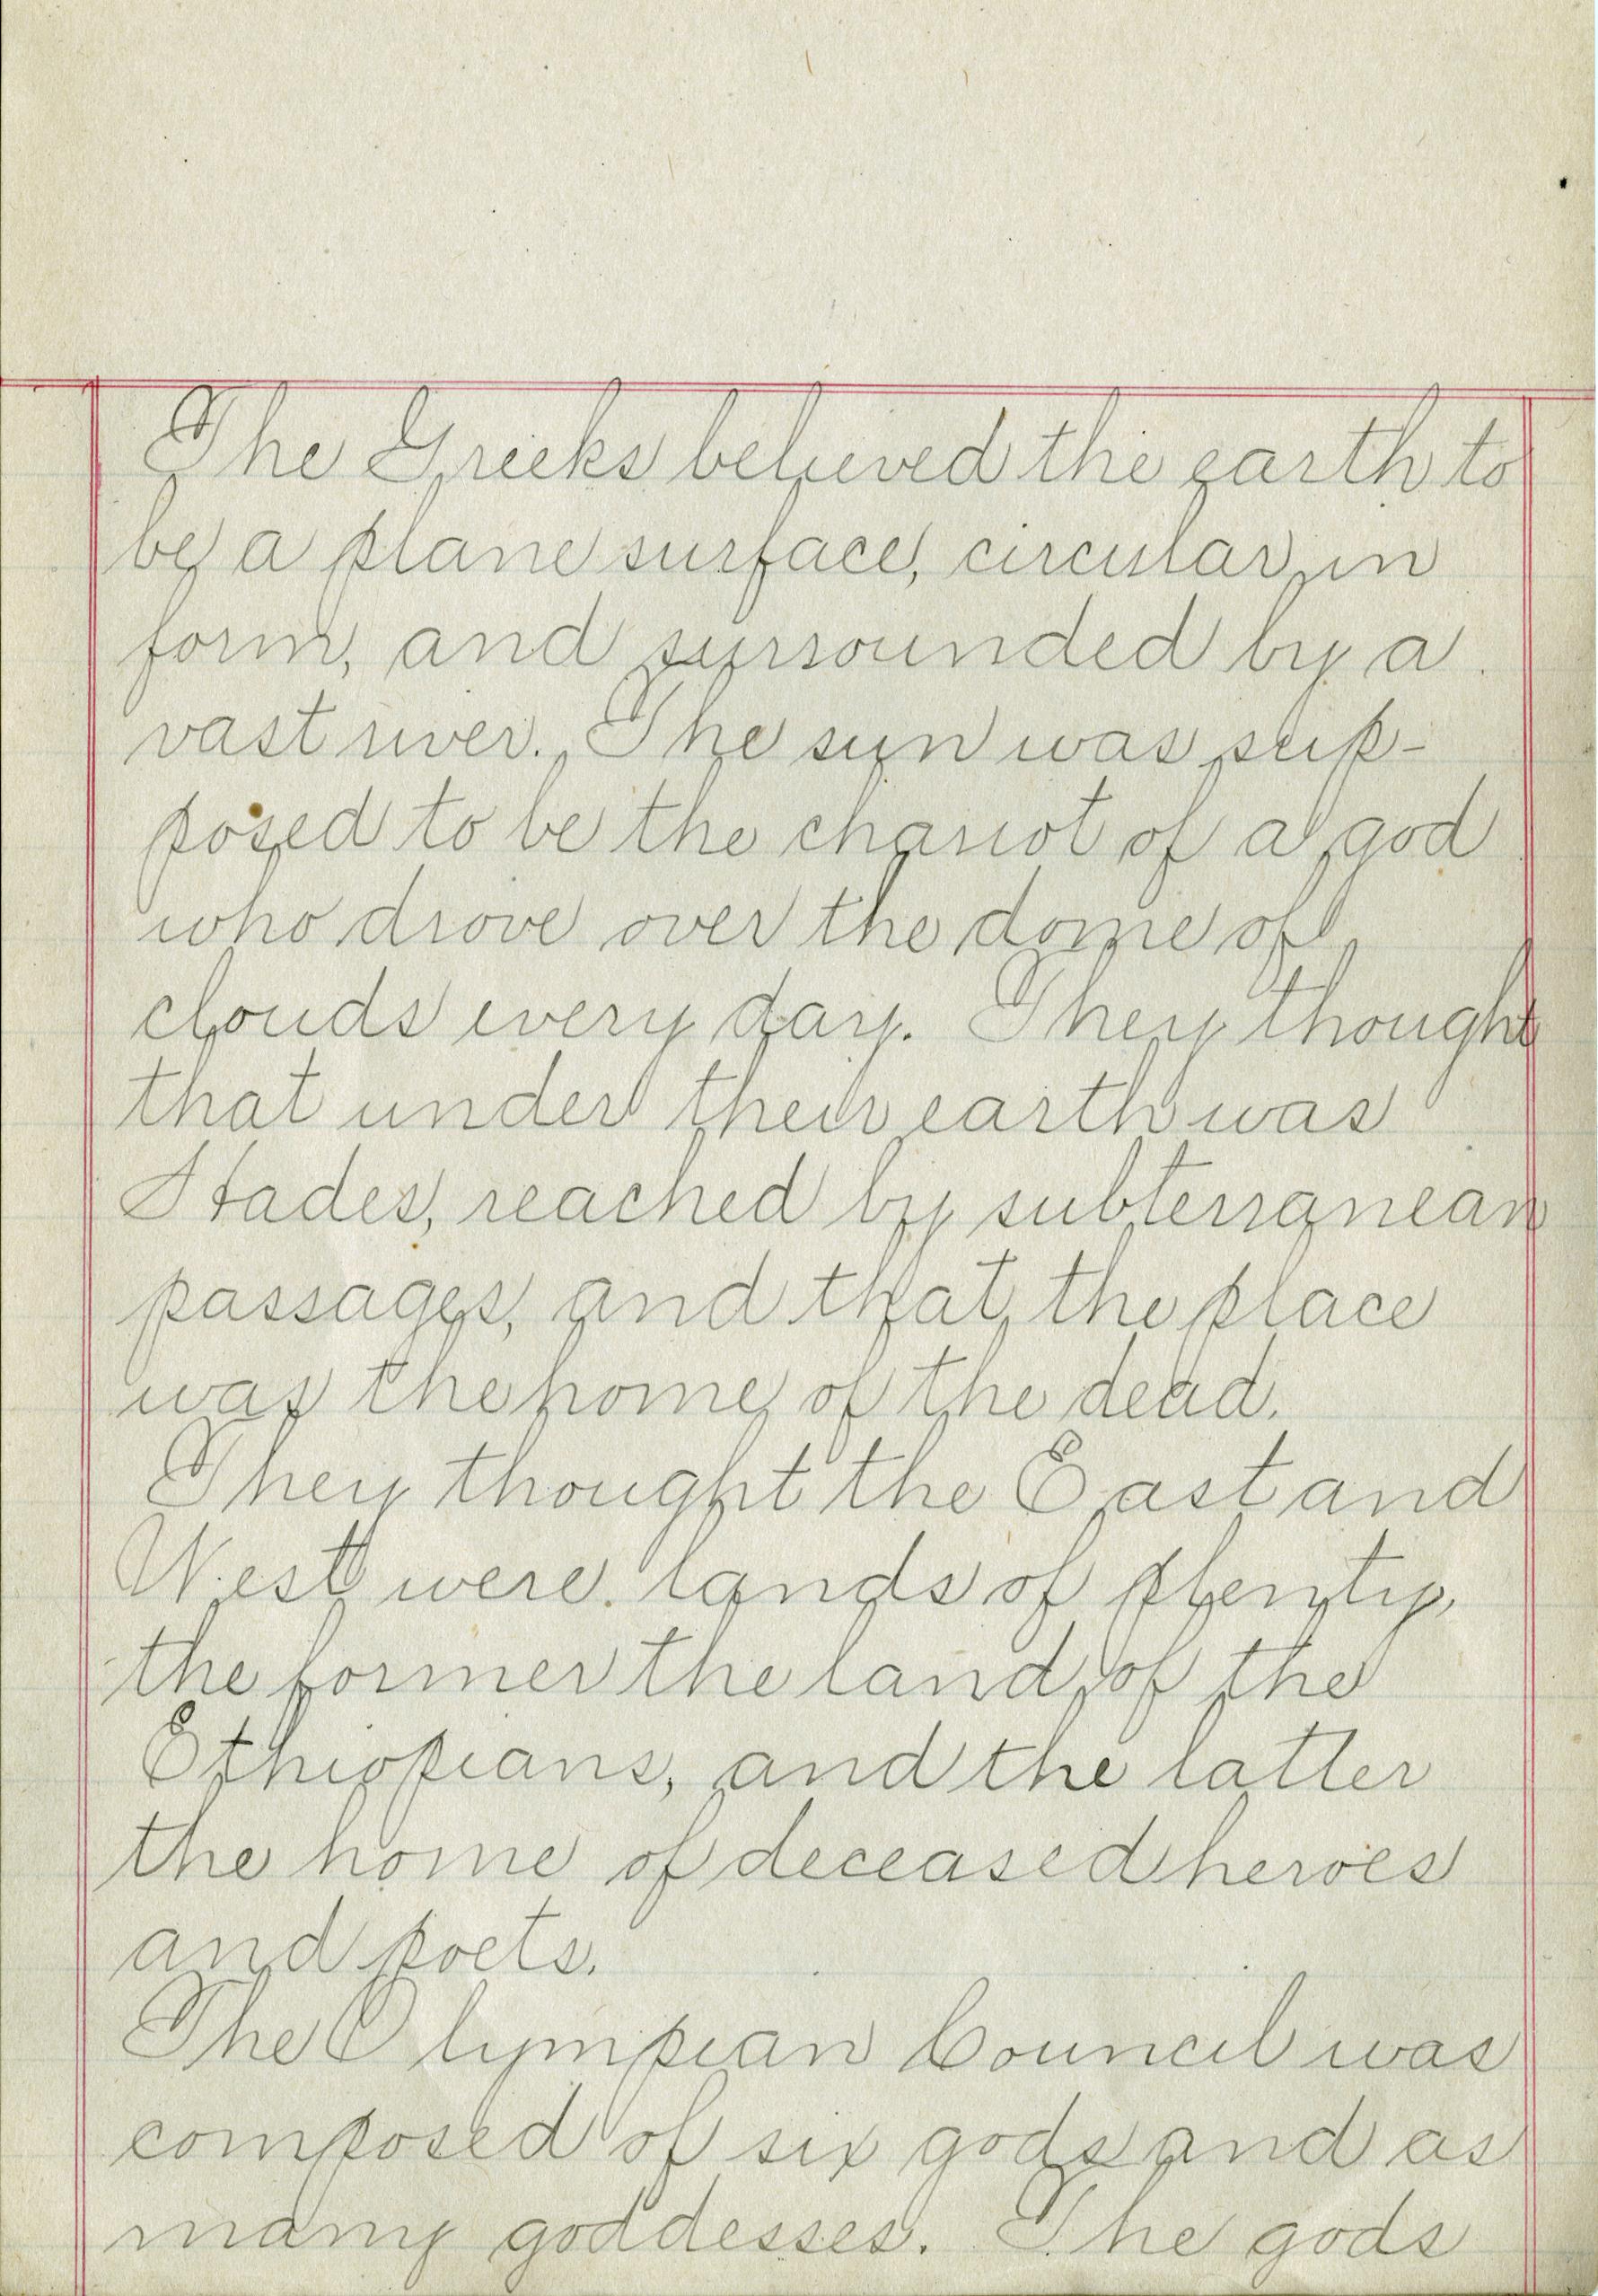 The Greeks believed the earth to
be a plane surface, circular in
form, and surrounded by a
vast river. The sun was sup-
posed to be the chariot of a god
who drove over the dome of
clouds every day. They thought
that under their earth was
Hades, reached by subterranean
passages, and that the place
was the home of the dead.
They thought the East and
West were lands of plenty,
the former the land of the
Ethiopians, and the latter
the home of deceased heroes
and poets.
The Olympian Council was
composed of six gods and as
many goddesses. The gods